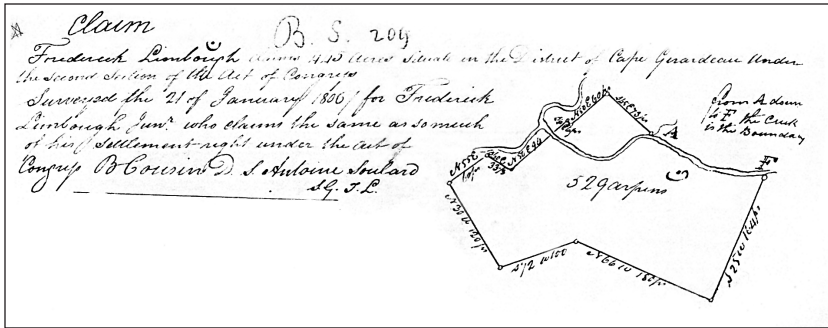 Claim
B. S. 209
Frederick Limbough claims 445 Acres situate in the District of Cape Gerardeau Under
the second section of the Act of Congress
Surveyed the 21 of January 1806 for Frederick
Limbough Junr. who claims the same as so much
of his settlement right under the act of
Congress B Cousin D. S. Antoine Soulard
S. G. T. L.
from A down
to F the Creek
is the Boundary
A
F
529 arpens
N 30 W 120 p
S 72 W 100
N 66 W 180 p
S 25 W 164 p